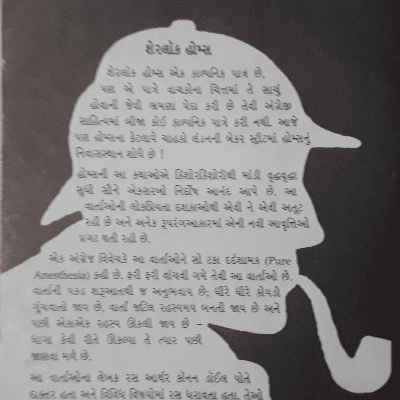 શેરલૉક હોમ્સ
શેરલૉક હોમ્સ એક કાલ્પનિક પાત્ર છે,
પણ એ પાત્રે વાચકોના ચિત્તમાં તે સાચું
હોવાની જેવી ભ્રમણા પેદા કરી છે તેવી અંગ્રેજી
સાહિત્યમાં બીજા કોઈ કાલ્પનિક પાત્રે કરી નથી. આજે
પણ હોમ્સના કેટલાયે ચાહકો લંડનની બેકર સ્ટ્રીટમાં હોમ્સનું
નિવાસસ્થાન શોધે છે !
હોમ્સની આ કથાઓએ કિશોરકિશોરીથી માંડી વૃદ્ધવૃદ્ધા
સુધી સૌને એકસરખો નિર્દોષ આનંદ આપે છે. આ
વાર્તાઓની લોકપ્રિયતા દશકાઓથી એવી ને એવી અતૂટ
રહી છે અને અનેક રૂપરંગઆકારમાં એની નવી આવૃત્તિઓ
પ્રગટ થતી રહી છે.
એક અંગ્રેજ વિવેચકે આ વાર્તાઓને સો ટકા દર્દશામક (Pure
Anesthesia) કહી છે. ફરી ફરી વાંચવી ગમે તેવી આ વાર્તાઓ છે.
વાર્તાની પકડ શરૂઆતથી જ અનુભવાય છે; ધીરે ધીરે કોયડો
ગૂંચવાતો જાય છે, વાર્તા જટિલ રહસ્યમય બનતી જાય છે અને
પછી એકાએક રહસ્ય ઊકલી જાય છે –
ધાગા કેવી રીતે ઊકલ્યા તે ત્યાર પછી
જાણવા મળે છે.
આ વાર્તાઓના લેખક સર આર્થર કૉનન ડૉઈલ પોતે
દાક્તર હતા અને વિવિધ વિષયોમાં રસ ધરાવતા હતા. તેઓ